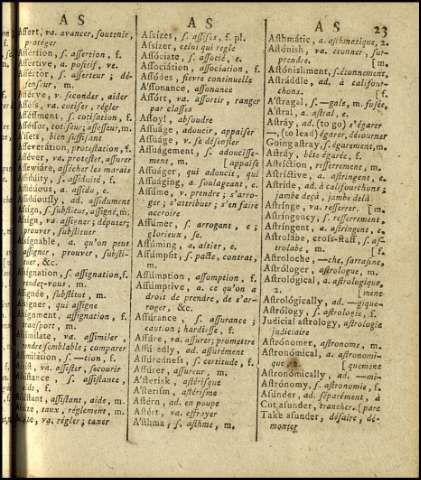 A S
Assert, va. avancer, soutenir,
protéger
Assértion, s. assertion, f.
Assertive, a. positif, ve.
Assértor, s. asserteur; dé-
fenseur, m.
va. cotiser, régler
s. cotisation, f.
cotiseur; assesseur, m.
bien suffisant
Asseverátion, protestation, f.
va. protester, assurer
s. assiduité, f.
a. assidu, e.
ad. assidument
s. substitut, assigné, m.
va. assigner; députer;
prouver, substituer
a. qu'on peut
assigner, prouver, substi-
tuer, &c.
s. assignation, f.
rendez-vous, m.
substitut, m.
qui assigne
assignation, f.
transport, m.
va. assimiler,
rendre semblable; comparer
s. —tion, f.
assister, secourir
s. assistance,
f.
assistant, aide, m.
taux, réglement, m.
va. régler; taxer
A S
Assizes, s. assises, f. pl.
Assizer, celui qui regle
Assóciate, s. associé, e.
Associátion, association, f.
fievre continuelle
Assonance, assonance
Assórt, va. assortir, ranger
par classes
Assoyl, absoudre
Assuáge, adoucir, appaiser
Assuáge, v. se désenfler
Assuágement, s. adoucisse-
ment, m. [appaise
Assuáger, qui adoucit, qui
Assuáging, a. soulageant, e.
Assúme, v. prendre; s'arro-
ger; s'attribuer; s'en faire
accroire
Assúmer, s. arrogant, e;
glorieux, se.
Assúming, a. altier, e.
Assúmpsit, s. pacte, contrat,
m.
Assúmption, assomption, f.
Assúmptive, a. ce qu'on a
droit de prendre, de s'ar-
roger, &c.
Assúrance, s. assurance;
caution; hardiesse, f.
Assúre, va. assurer; promettre
Assúredly, ad. assurément
Assúredness, s. certitude, f.
Assúrer, assureur, m.
A'sterisk, astérisque
A'sterism, astérisme
Astérn, ad. en poupe
Astért, va. effrayer
A'sthma, s. asthme, m.
A S 23
Asthmátic, a. asthmatique, 2.
Astónish, va. étonner, sur-
prendre. [m.
Astónishment, s. étonnement,
Astráddle, ad. à califour-
chons. [f.
Astragal, s. —gale, m. fusée,
A'stral, a. astral, e.
Astráy, ad. (to go) s'égarer
—, (to lead) égarer, détourner
Going astray, s. égarement, m.
Astráy, bête égarée, f.
Astríction, resserrement, m.
Astríctive, a. astringent, e.
Astríde, ad. à califourchons;
jambe deçà, jambe delà
Astrínge, va. resserrer. [m.
Astríngency, s. resserrement,
Astríngent, a. astringent, e.
Astrolabe, cross-staff, s. as-
trolabe, m. [f.
Astroloche, —che, sarrasine,
Astróloger, astrologue, m.
Astrológical, a. astrologique,
[ment
Astrológically, ad. —gique-
Astrólogy, s. astrologie, f.
Judicial astrology, astrologie
judiciaire
Astrónomer, astronome, m.
Astronómical, a. astronomi-
que [quement
Astronómically, ad. —mi-
Astrónomy, s. astronomie, f.
Asúnder, ad. séparément, à
Cut asunder, trancher. [part
Take asunder, défaire, dé-
monter